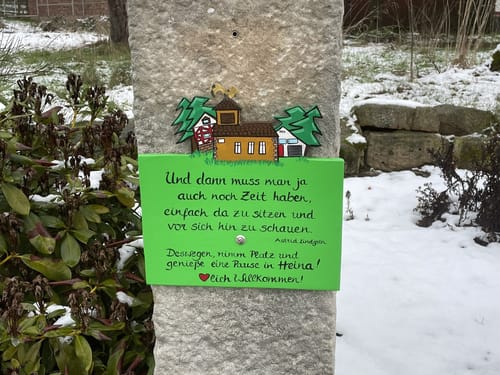 Und dann muss man ja
auch noch Zeit haben,
einfach da zu sitzen und
vor sich hin zu schauen.
Astrid Lindgren
Deswegen, nimm Platz und
genieße eine Pause in Heina!
❤lich Willkommen!